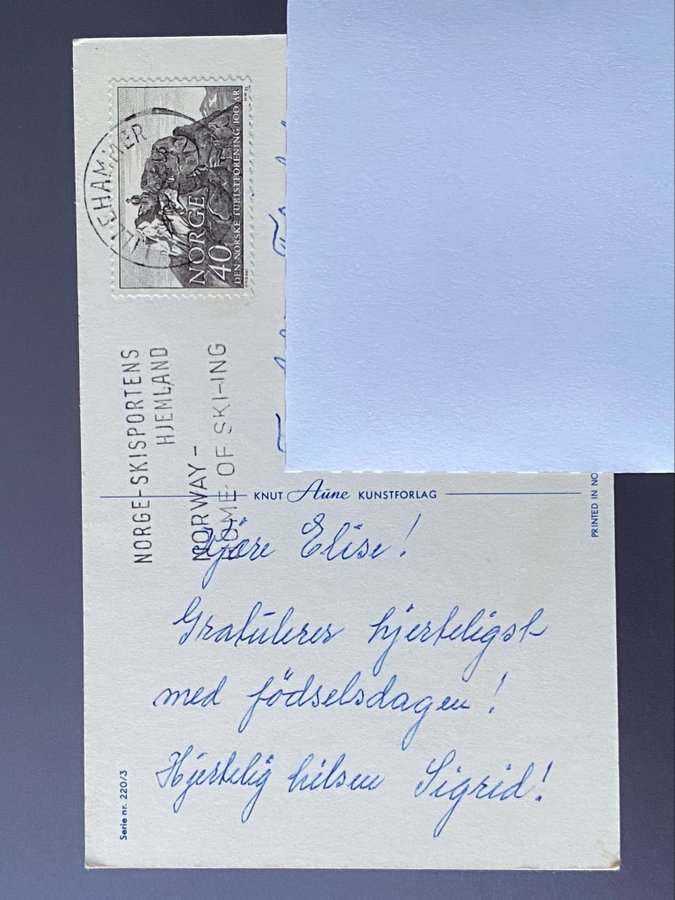 LILLEHAMMER
NORGE
40
DEN NORSKE TURISTFORENING 100 ÅR
NORGE-SKISPORTENS
HJEMLAND
NORWAY-
HOME-OF SKI-ING
KNUT Aune KUNSTFORLAG
PRINTED IN NO
Kjöre Elise!
Gratulerer hjerteligst
med födselsdagen!
Hjertelig hilsen Sigrid!
Serie nr. 220/3